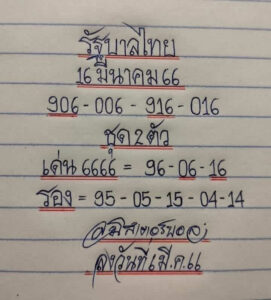 รัฐบาลไทย
16 มีนาคม 66
906 - 006 - 916 - 016
ชุด 2 ตัว
เด่น 6666 = 96 - 06 - 16
รอง = 95 - 05 - 15 - 04 - 14
ลงวันที่ 1 มี.ค. 66